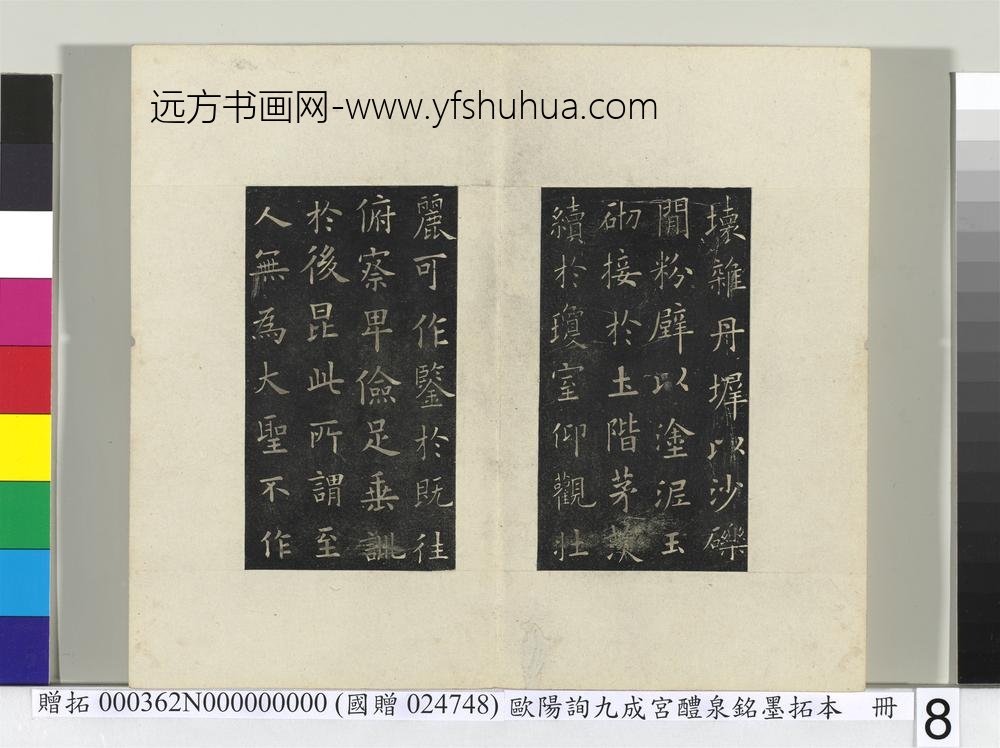 远方书画网-www.yfshuhua.com
壞雜丹墀以沙礫
閒粉壁以塗泥玉
砌接於土階茅茨
續於瓊室仰觀壯
麗可作鑒於既往
俯察卑儉足垂訓
於後昆此所謂至
人無為大聖不作
贈拓 000362N000000000 (國贈 024748) 歐陽詢九成宮醴泉銘墨拓本 冊
8